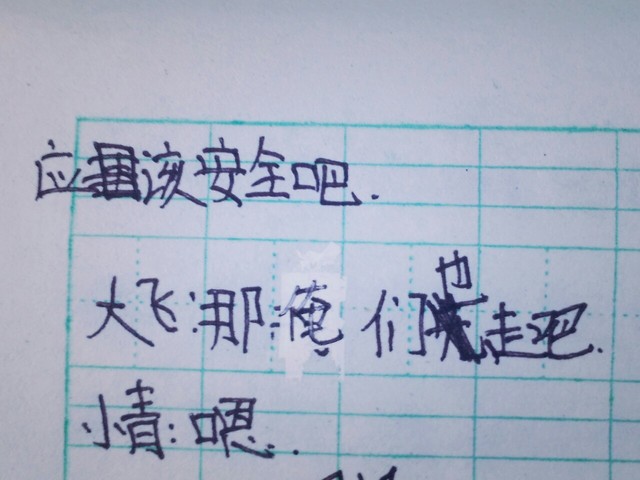 应该安全吧.
大飞:那俺们也走吧.
小青:嗯.